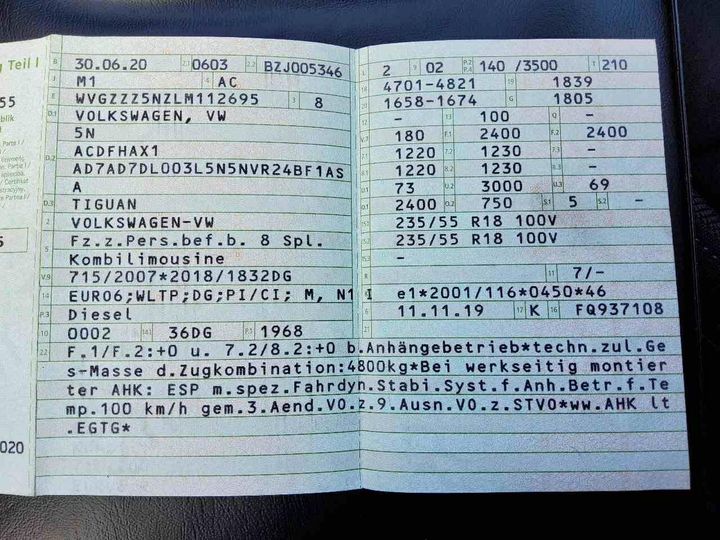 g Teil I
B 30.06.20 2.1 0603 2.2 BZJ005346
J M1 4 AC
E WVGZZZ5NZLM112695 3 8
D.1 VOLKSWAGEN, VW
5N
D.2 ACDFHAX1
AD7AD7DL003L5N5NVR24BF1AS
A
D.3 TIGUAN
2 VOLKSWAGEN-VW
5 Fz.z.Pers.bef.b. 8 Spl.
Kombilimousine
V.9 715/2007*2018/1832DG
14 EURO6;WLTP;DG;PI/CI; M, N1 I
P.3 Diesel
10 0002 14.1 36DG P.1 1968
L 2 9 02 P.2 P.4 140 /3500 T 210
18 4701-4821 19 1839
20 1658-1674 G 1805
12 - 13 100 Q -
V.7 180 F.1 2400 F.2 2400
7.1 1220 7.2 1230 -
8.1 1220 8.2 1230 -
U.1 73 U.2 3000 U.3 69
O.1 2400 O.2 750 S.1 5 S.2 -
15.1 235/55 R18 100V
15.2 235/55 R18 100V
15.3 -
R 11 7/-
K e1*2001/116*0450*46
6 11.11.19 17 K 16 FQ937108
21
22 F.1/F.2:+0 u. 7.2/8.2:+0 b.Anhängebetrieb*techn.zul.Ge
s-Masse d.Zugkombination:4800kg*Bei werkseitig montier
ter AHK: ESP m.spez.Fahrdyn.Stabi.Syst.f.Anh.Betr.f.Te
mp.100 km/h gem.3.Aend.VO.z.9.Ausn.VO.z.STVO*ww.AHK lt
.EGTG*
55
020